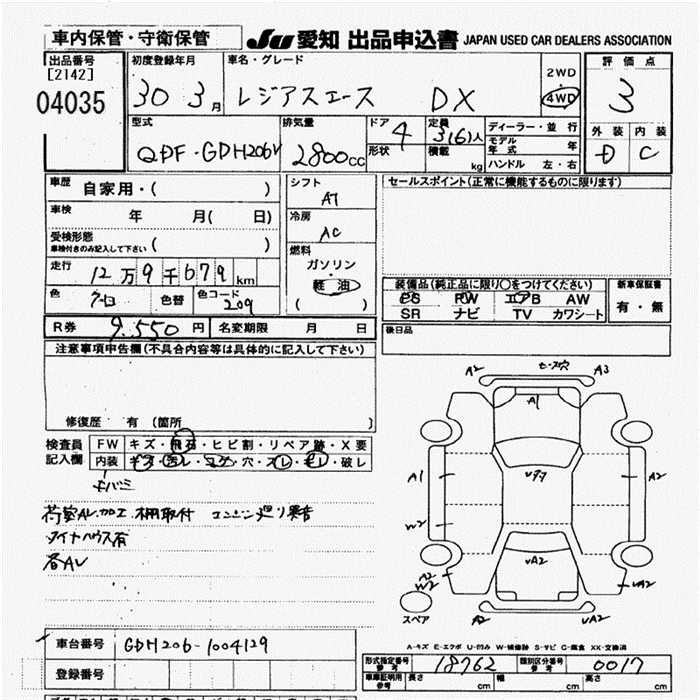 車内保管・守衛保管 JU愛知 出品申込書 JAPAN USED CAR DEALERS ASSOCIATION
出品番号 [2142] 04035
初度登録年月 30 3月
車名・グレード レジアスエース DX
2WD 4WD
評価点 3
外装 D 内装 C
型式 QDF・GDH206V
排気量 2800cc
ドア 4 形状
定員 3(6)人 積載 kg
ディーラー・並行
モデル年式 年
ハンドル 左・右
車歴 自家用・( )
車検 年 月( 日)
受検形態 車検付きのみ記入して下さい ( )
走行 12万9千679km
色 色替 色コード 209
シフト AT
冷房 AC
燃料 ガソリン・軽油 ( )
セールスポイント(正常に機能するものに限ります)
装備品(純正品に限り○をつけてください)
PS PW エアB AW
SR ナビ TV カワシート
新車保証書 有・無
R券 9,550円 名変期限 月 日
後日品
注意事項申告欄(不具合内容等は具体的に記入して下さい)
修復歴 有 (箇所 )
検査員記入欄
FW キズ・飛石・ヒビ割・リペア跡・X要
内装 キズ・汚レ・コゲ・穴・スレ・モレ・破レ
荷室AV.加工 棚取付 エンジン廻リ異音
タイトハウス有
各AV
A2 ビス穴 A3
A1
A1 A2
W2
A2 W2 UA2
スペア
A2 UA2
A-キズ E-エクボ U-凹み W-補修跡 S-サビ C-腐食 XX-交換済
車台番号 GDH206-1004129
登録番号
形式指定番号 参考 18762 類別区分番号 参考 0017
車庫証明用 参考 長さ cm 幅 cm 高さ cm